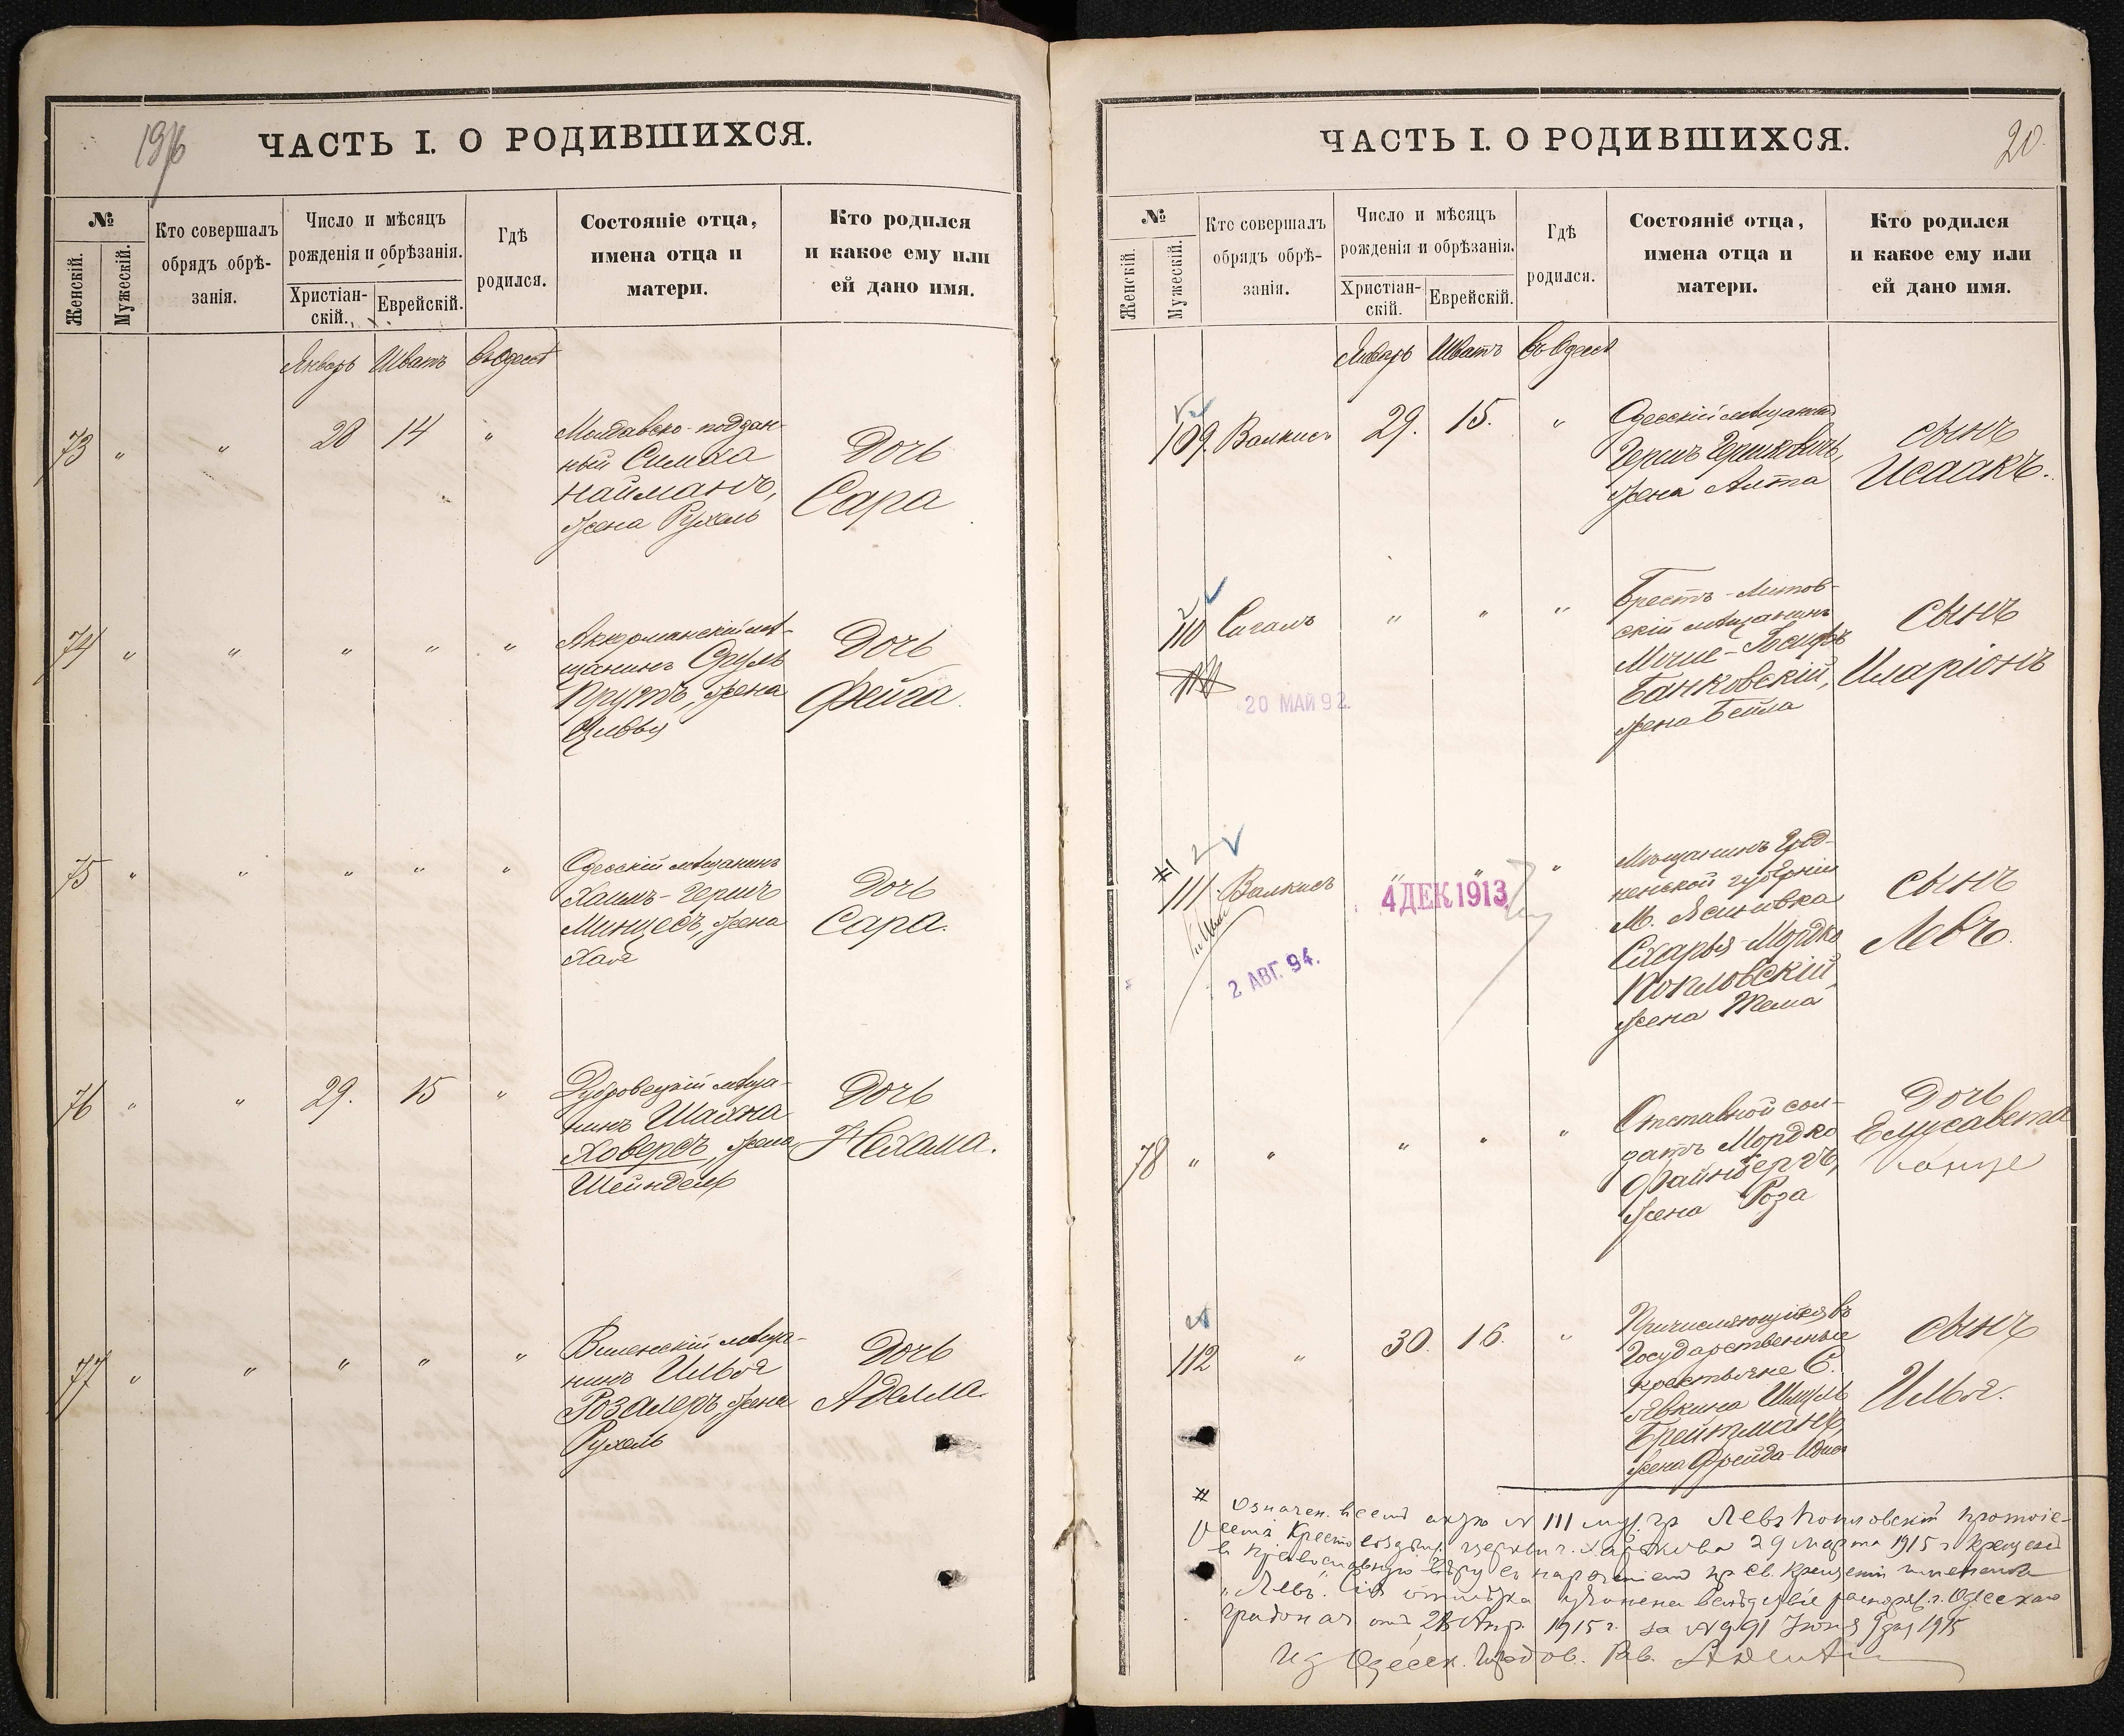 ЧАСТЬ I. О РОДИВШИХСЯ.
№
Женскій.
Мужескій.
Кто совершалъ
обрядъ обрѣ-
занія.
Число и мѣсяцъ
рожденія и обрѣзанія.
Христіан-
скій.
Еврейскій.
Гдѣ
родился.
Состояніе отца,
имена отца и
матери.
Кто родился
и какое ему или
ей дано имя.
Январь Шватъ въ Одессѣ
73 " " 28 14 "
Молдавско-поддан-
ный Симха
Найманъ,
жена Рухель
Дочь
Сара
74 " " " " "
Аккерманскій мѣ-
щанинъ Сруль
Прутъ, жена
Цивья
Дочь
Фейга.
75 " " " " "
Одесскій мѣщанинъ
Хаимъ-Гершъ
Минцесъ, жена
Хая
Дочь
Сара.
76 " " 29. 15 "
мѣща-
нинъ Шахна
Ховеръ, жена
Шейндель
Дочь
Нехама.
77 " " " " "
Виленскій мѣща-
нинъ Илья
жена
Рухель
Дочь
Аделла.
ЧАСТЬ I. О РОДИВШИХСЯ.
20.
№
Женскій.
Мужескій.
Кто совершалъ
обрядъ обрѣ-
занія.
Число и мѣсяцъ
рожденія и обрѣзанія.
Христіан-
скій.
Еврейскій.
Гдѣ
родился.
Состояніе отца,
имена отца и
матери.
Кто родился
и какое ему или
ей дано имя.
Январь Шватъ въ Одессѣ
109. Валкисъ 29. 15. "
Одесскій мѣщанинъ
Гершъ Гершковичъ,
жена
Сынъ
Исаакъ.
110 Сигалъ " " "
20 МАЙ 92.
Брестъ-Литов-
скій мѣщанинъ
Банковскій,
жена Бейла
Сынъ
Иларіонъ
111 Валкисъ " " "
4 ДЕК 1913
2 АВГ. 94.
Мѣщанинъ Грод-
ненской губерніи
М. Ясиновка
Схарья-Мордко
жена
Сынъ
Левъ.
78 " " " " "
Отставной сол-
датъ Мордко
Файнбергъ,
жена Роза
Дочь
Елисавета
112 " 30. 16. "
Причисляющійся въ
Государственные
крестьяне С.
Явкина
Брейтманъ,
жена Фрейда-
Сынъ
Илья.
# Означен. акту № 111 Левъ протоіе-
реемъ церкви г. Харькова 29 марта 1915 г. крещенъ
въ православную вѣру съ нареченіемъ при Св. Крещеніи именемъ
"Левъ". отмѣтка учинена вслѣдствіе г. Одесскаго
Градонач. отъ Апр. 1915 г. за № 991 дня 1915
Одесск. Равв.